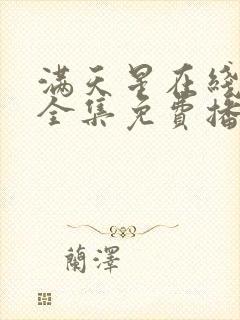 满天星在綫
全集免費播
蘭澤